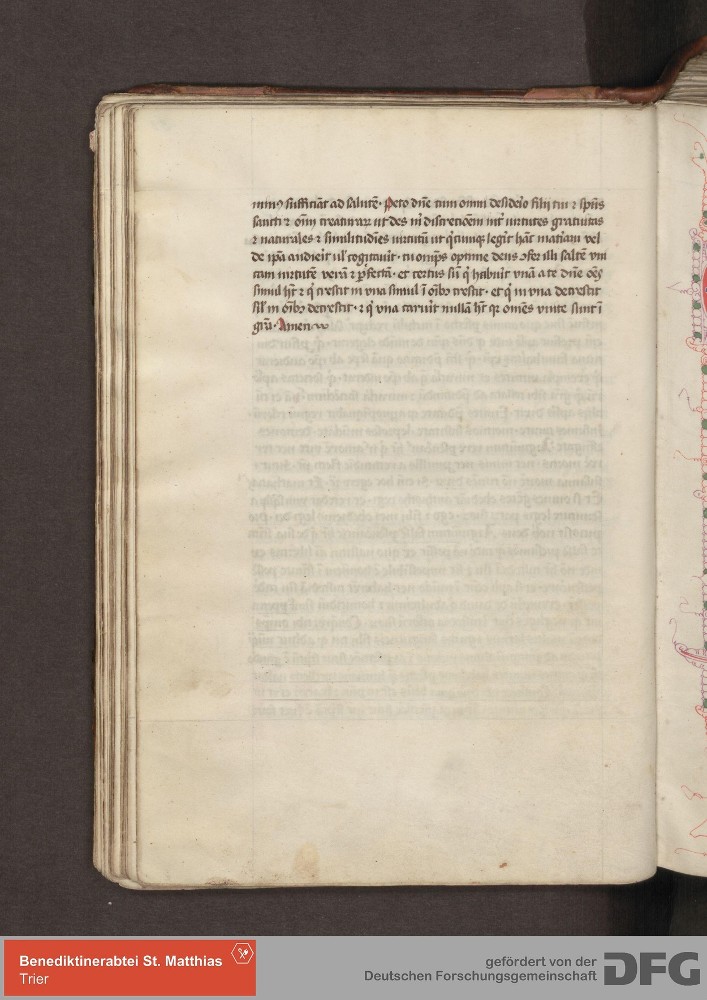 minꝰ sufficiāt ad salutē · Peto dn̄e cum omni desiderio filij tui ⁊ spūs
sancti ⁊ om̄ creaturar̄ ut des m̄ discretiōem int̄ uirtutes gratuitas
⁊ naturales ⁊ similitudīes uirtutū ut q̄cumqꝫ legit hāc matiam vel
de ip̄a audieit ul̓ cogitauit · tu om̄ps optime deus ꝯfer illi saltē vni
cam uirtutē verā ⁊ ꝑfectā · et certus sū q̓ habuit vnā a te dn̄e oēs
simul hꝫ ⁊ q̓ crescit in vna simul ī oībꝫ crescit · et q̓ in vna decrescit
sil̓ in oībꝫ decrescit · ⁊ q̓ vna caruit nullā hꝫ qꝛ omēs vnite sunt ī
gr̄a · Amen
Benediktinerabtei St. Matthias
Trier
gefördert von der
Deutschen Forschungsgemeinschaft
DFG